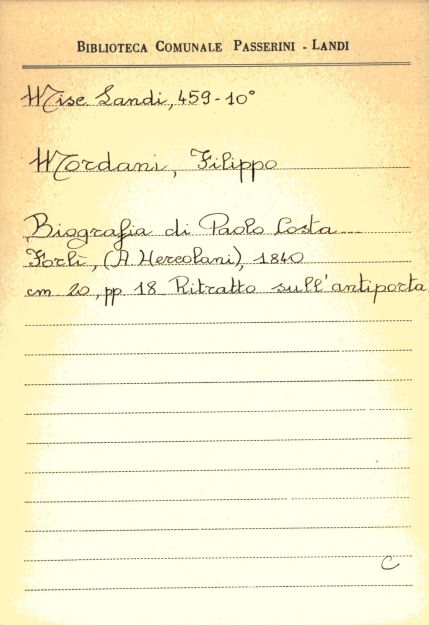 BIBLIOTECA COMUNALE PASSERINI - LANDI
Misc Landi, 459-10°
Mordani, Filippo
Biografia di Paolo Costa...
Forlì, (A. Hercolani), 1840
cm 20, pp 18 Ritratto sull'antiporta
C